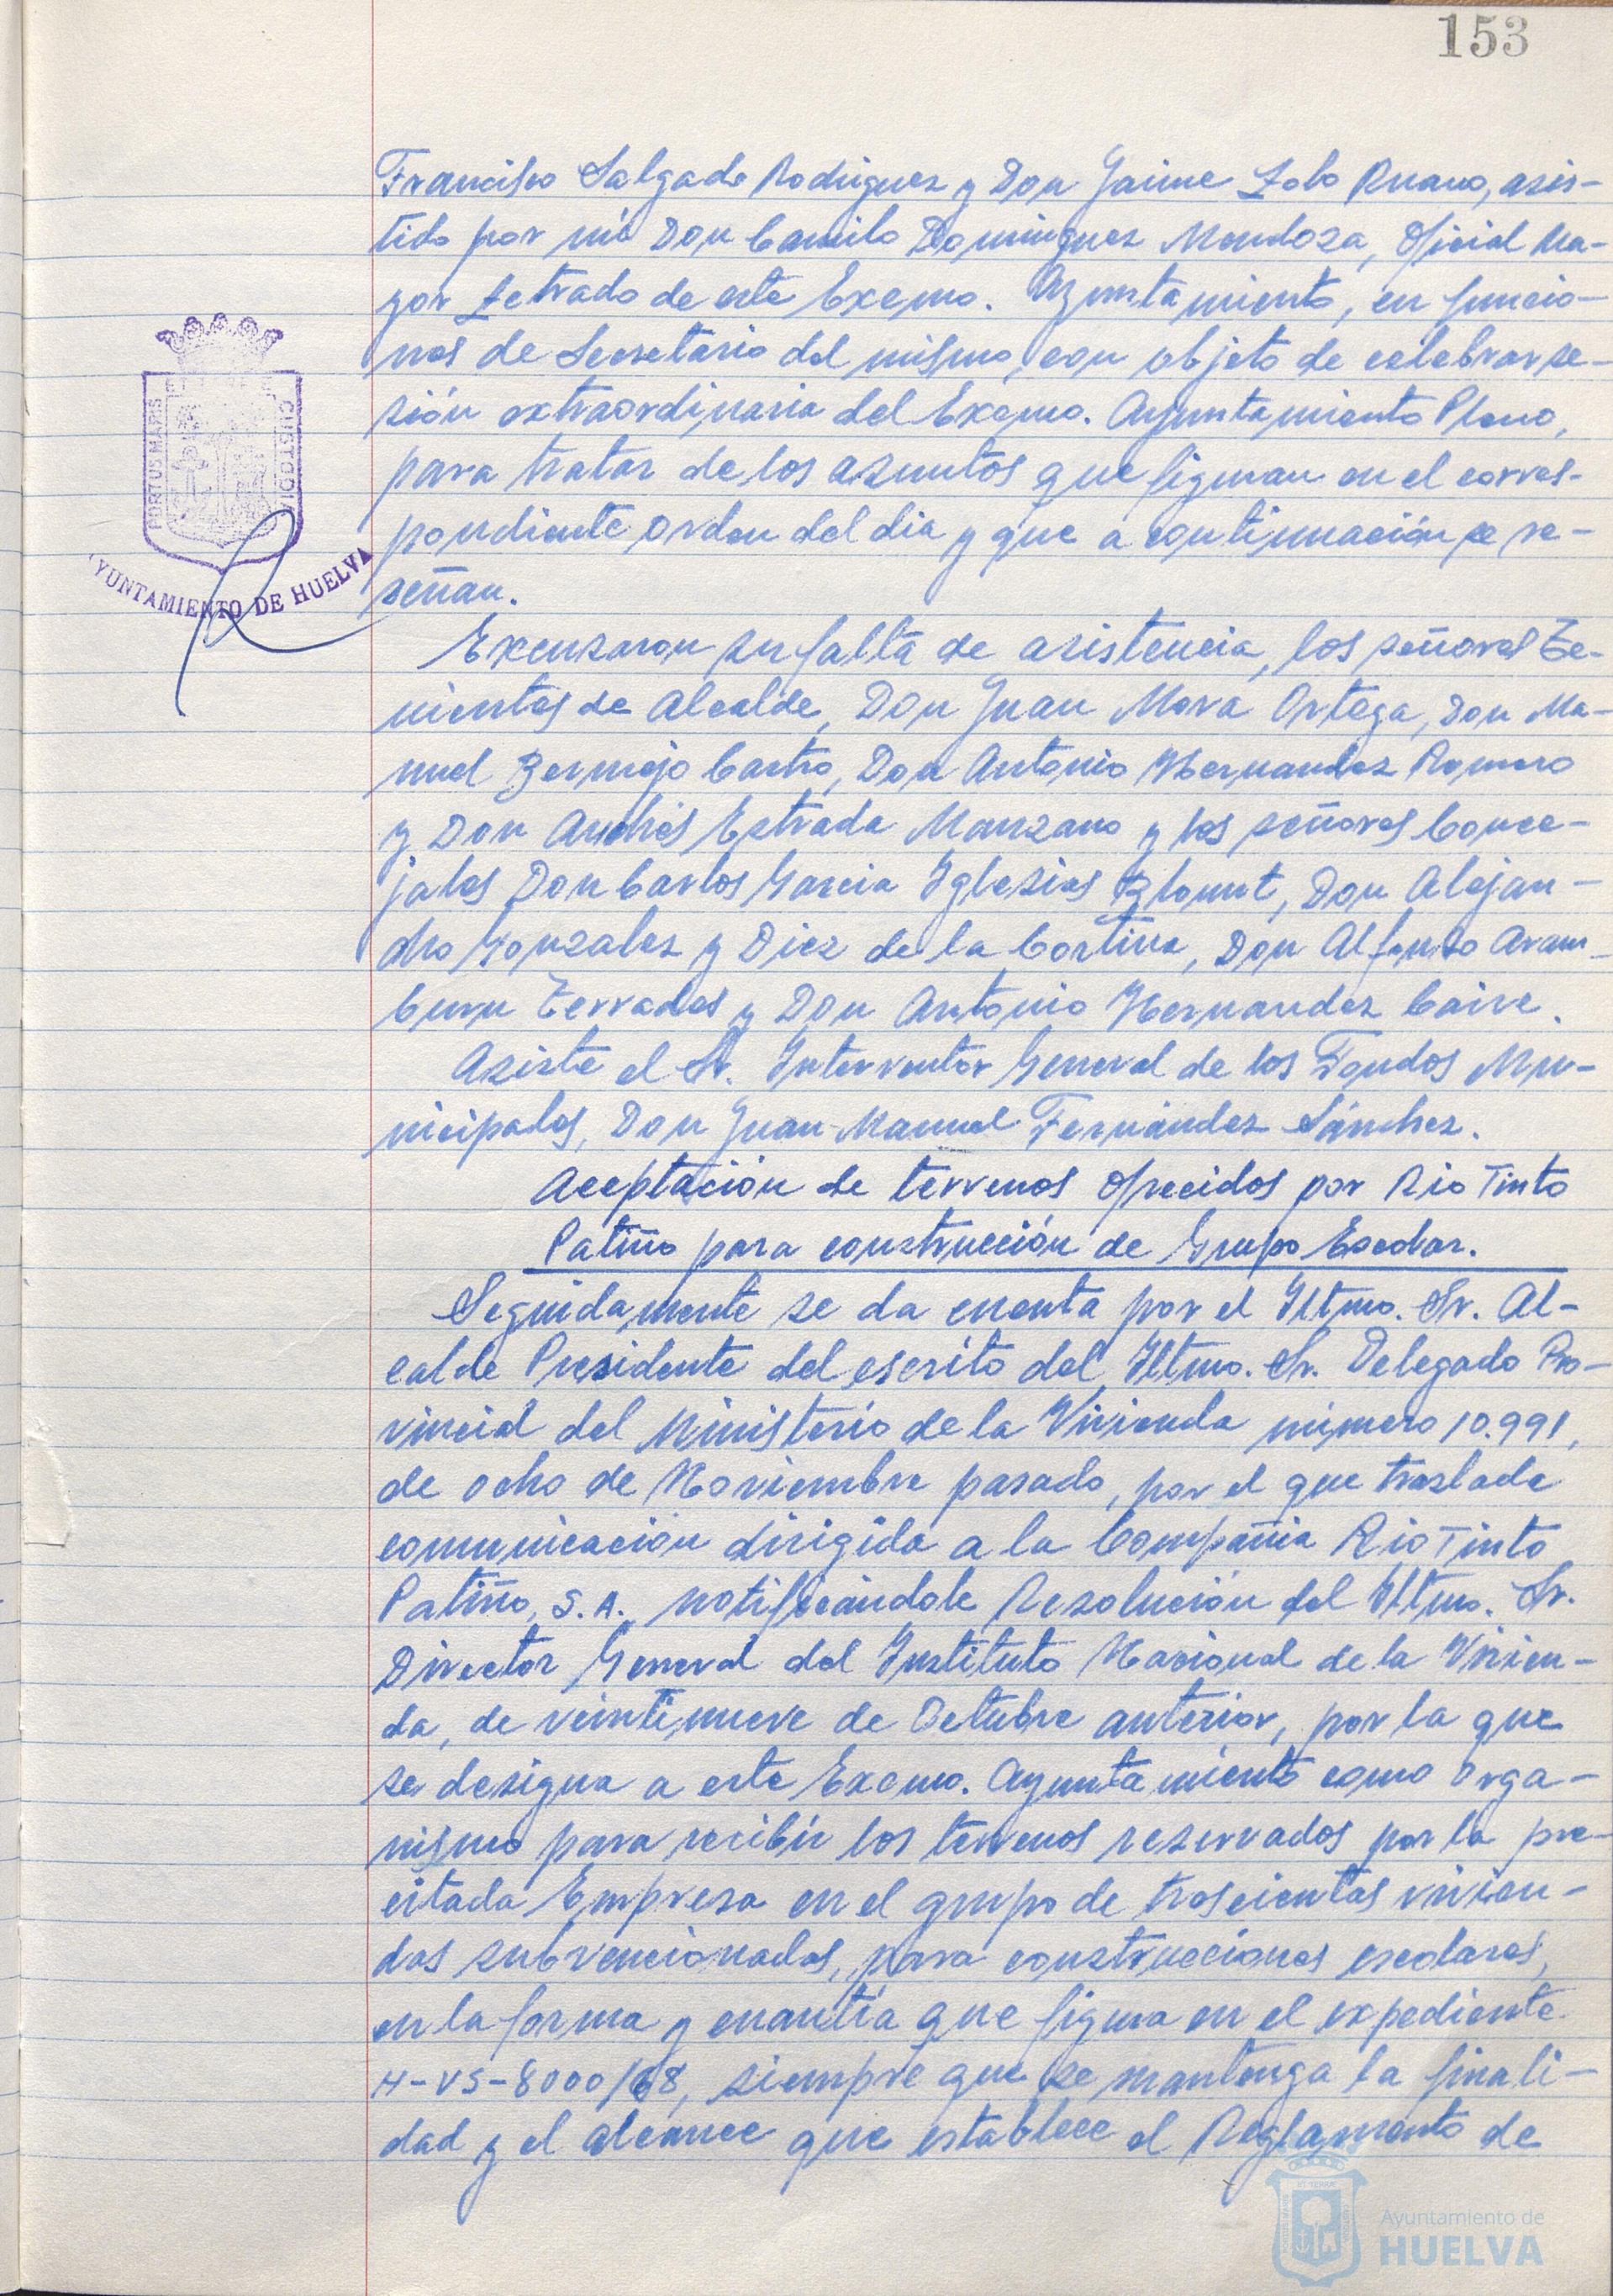 153
Francisco Salgado Rodriguez y Don Jaime Lobo Ruano, asis-
tido por mí Don Camilo Dominguez Mendoza, Oficial Ma-
yor Letrado de este Excmo. Ayuntamiento, en funcio-
nes de Secretario del mismo, con objeto de celebrar se-
sión extraordinaria del Excmo. Ayuntamiento Pleno,
para tratar de los asuntos que figuran en el corres-
pondiente orden del dia y que a continuación se re-
señan.
PORTUS MARIS ET TERRAE CUSTODIA
AYUNTAMIENTO DE HUELVA
Excusaron su falta de asistencia, los señores Te-
nientes de Alcalde, Don Juan Mora Ortega, Don Ma-
nuel Bermejo Castro, Don Antonio Hernandez Romero
y Don Andrés Estrada Manzano y los señores Conce-
jales Don Carlos Garcia Yglesias Blount, Don Alejan-
dro Gonzalez y Diez de la Cortina, Don Alfonso Aram-
buru Terrades y Don Antonio Hernandez Caire.
Asiste el Sr. Interventor General de los Fondos Mu-
nicipales, Don Juan-Manuel Fernández Sánchez.
Aceptación de terrenos ofrecidos por Rio Tinto
Patiño para construcción de Grupo Escolar.
Seguidamente se da cuenta por el Iltmo. Sr. Al-
calde Presidente del escrito del Iltmo. Sr. Delegado Pro-
vincial del Ministerio de la Vivienda número 10.991,
de ocho de Noviembre pasado, por el que traslada
comunicación dirigida a la Compañia Rio Tinto
Patiño, S.A., notificándole Resolución del Iltmo. Sr.
Director General del Instituto Nacional de la Vivien-
da, de veintinueve de Octubre anterior, por la que
se designa a este Excmo. Ayuntamiento como Orga-
nismo para recibir los terrenos reservados por la pre-
citada Empresa en el grupo de trescientas vivien-
das subvencionadas, para construcciones escolares,
en la forma y cuantía que figura en el expediente
H-VS-8000/68, siempre que se mantenga la finali-
dad y el alcance que establece el Reglamento de
Ayuntamiento de
HUELVA